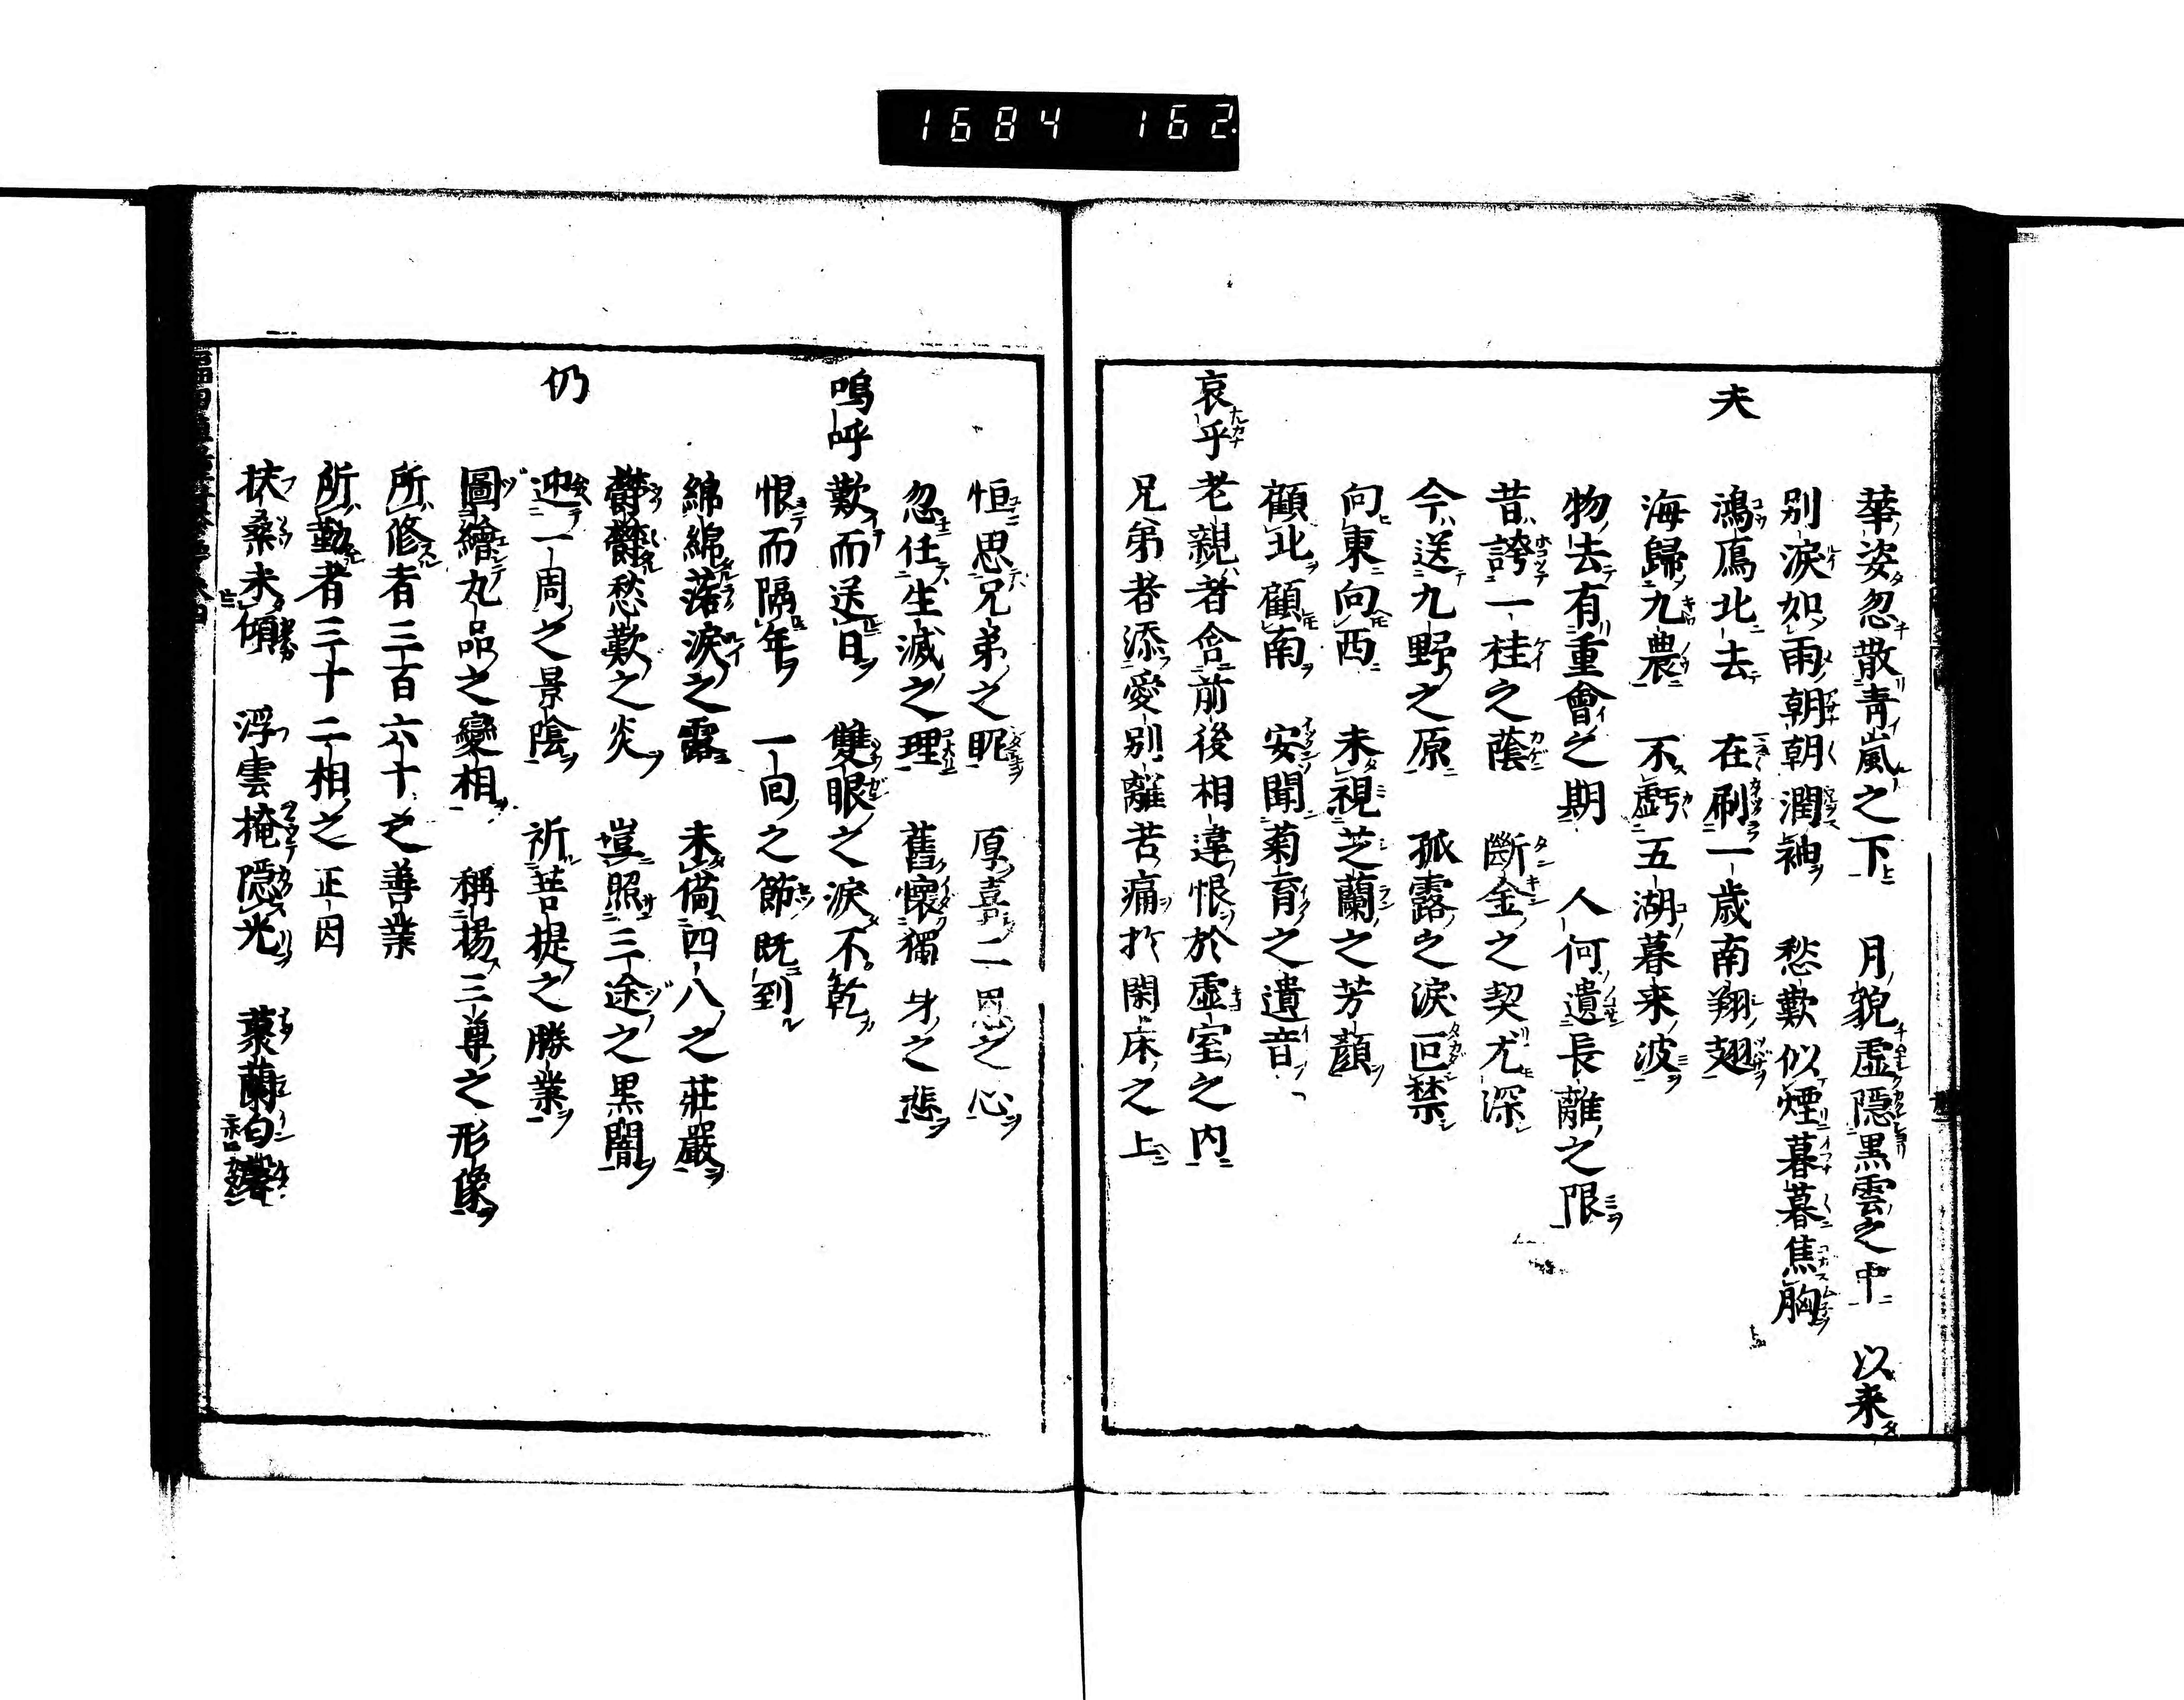 1684 162
華姿忽散青嵐之下 月貌虚隠黒雲之中 以来
別涙如雨朝朝潤袖 愁歎似煙暮暮焦胸
夫 鴻鴈北去 在刷一歳南翔翅
海歸九農 不虧五湖暮来波
物去有重會之期 人何遺長離之限
昔誇一桂之蔭 斷金之契尤深
今送九野之原 孤露之涙叵禁
向東向西 未視芝蘭之芳顔
顧北顧南 安聞菊育之遺音
哀乎 老親者含前後相違恨於虚室之内
兄弟者添愛別離苦痛於閑床之上
恒思兄弟之昵 厚喜二恩之心
忽任生滅之理 舊懷獨身之悲
嗚呼 歎而送日 雙眼之涙不乾
恨而隔年 一回之節既到
綿綿落涙之露 未備四八之荘嚴
欝欝愁歎之炎 豈照三途之黒闇
仍 迎一周之景陰 祈菩提之勝業
圖繪九品之變相 稱揚三尊之形像
所修者三百六十之善業
所勤者三十二相之正因
扶桑未傾 浮雲掩隠光 叢蘭